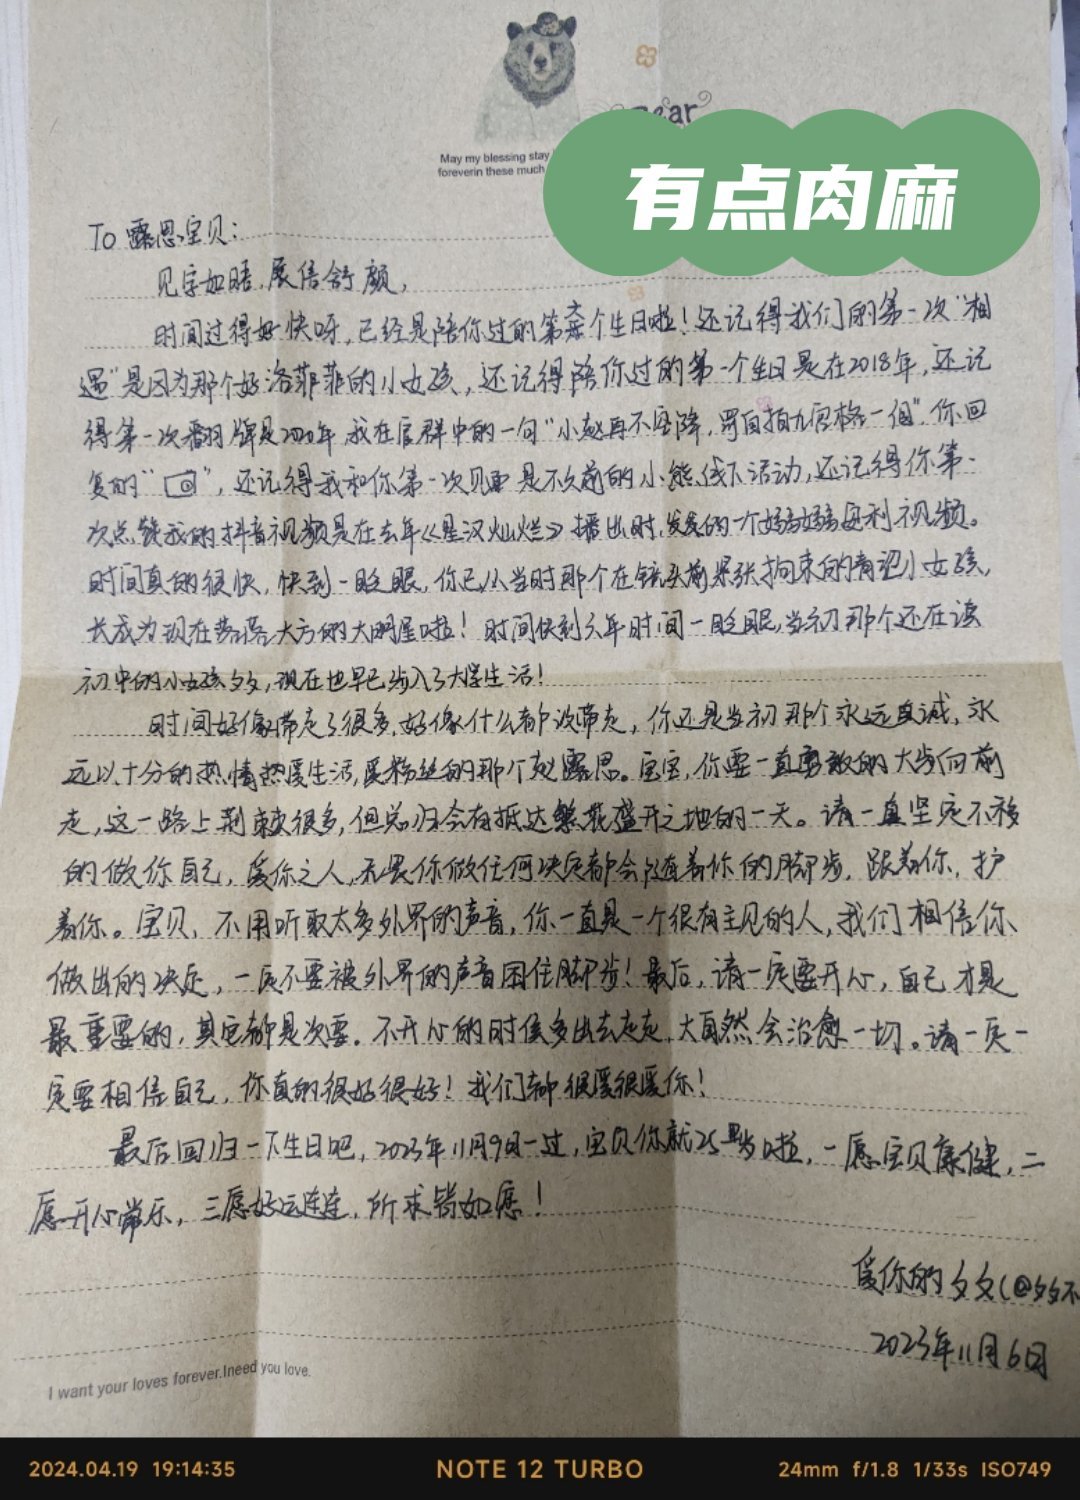 Bear
May my blessing stay
foreverin these much
有点肉麻
To 露思宝贝：
见字如晤，展信舒颜，
时间过得好快呀，已经是陪你过的第六个生日啦！还记得我们的第一次“相
遇”是因为那个好洛菲菲的小女孩，还记得陪你过的第一个生日是在2018年，还记
得第一次翻牌是2020年我在官群中的一句“小赵再不空降，罚自拍九宫格一组”，你回
复的“ ”，还记得我和你第一次见面是不久前的小熊线下活动，还记得你第一
次点赞我的抖音视频是在去年《星汉灿烂》播出时，发的一个妈妈安利视频。
时间真的很快，快到一眨眼，你已从当时那个在镜头前紧张拘束的青涩小女孩，
长成为现在落落大方的大明星啦！时间快到六年时间一眨眼，当初那个还在读
初中的小女孩夕夕，现在也早已步入了大学生活！
时间好像带走了很多，好像什么都没带走，你还是当初那个永远真诚，永
远以十分的热情热爱生活，爱粉丝的那个赵露思。宝宝，你要一直勇敢的大步向前
走，这一路上荆棘很多，但总归会有抵达繁花盛开之地的一天。请一直坚定不移
的做你自己，爱你之人，无畏你做任何决定都会随着你的脚步，跟着你，护
着你。宝贝，不用听取太多外界的声音，你一直是一个很有主见的人，我们相信你
做出的决定，一定不要被外界的声音困住脚步！最后，请一定要开心，自己才是
最重要的，其它都是次要。不开心的时候多出去走走，大自然会治愈一切。请一定一
定要相信自己，你真的很好很好！我们都很爱很爱你！
最后回归一下生日吧，2023年11月9日一过，宝贝你就25岁啦，一愿宝贝康健，二
愿开心常乐，三愿好运连连，所求皆如愿！
爱你的夕夕（@夕夕不
2023年11月6日
I want your loves forever.Ineed you love.
2024.04.19 19:14:35
NOTE 12 TURBO
24mm f/1.8 1/33s ISO749